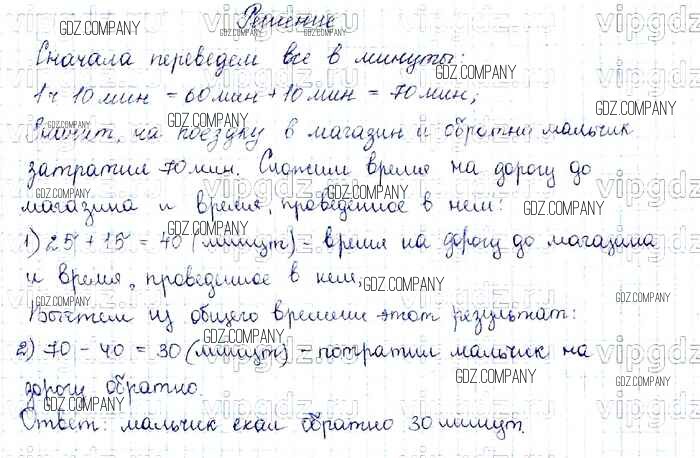 Решение
Сначала переведем все в минуты:
1 ч 10 мин = 60 мин + 10 мин = 70 мин;
Значит, на поездку в магазин и обратно мальчик
затратил 70 мин. Сложим время на дорогу до
магазина и время, проведенное в нем:
1) 25 + 15 = 40 (минут) - время на дорогу до магазина
и время, проведенное в нем,
Вычтем из общего времени этот результат:
2) 70 - 40 = 30 (минут) - потратил мальчик на
дорогу обратно.
Ответ: мальчик ехал обратно 30 минут.
GDZ.COMPANY
vipgdz.ru